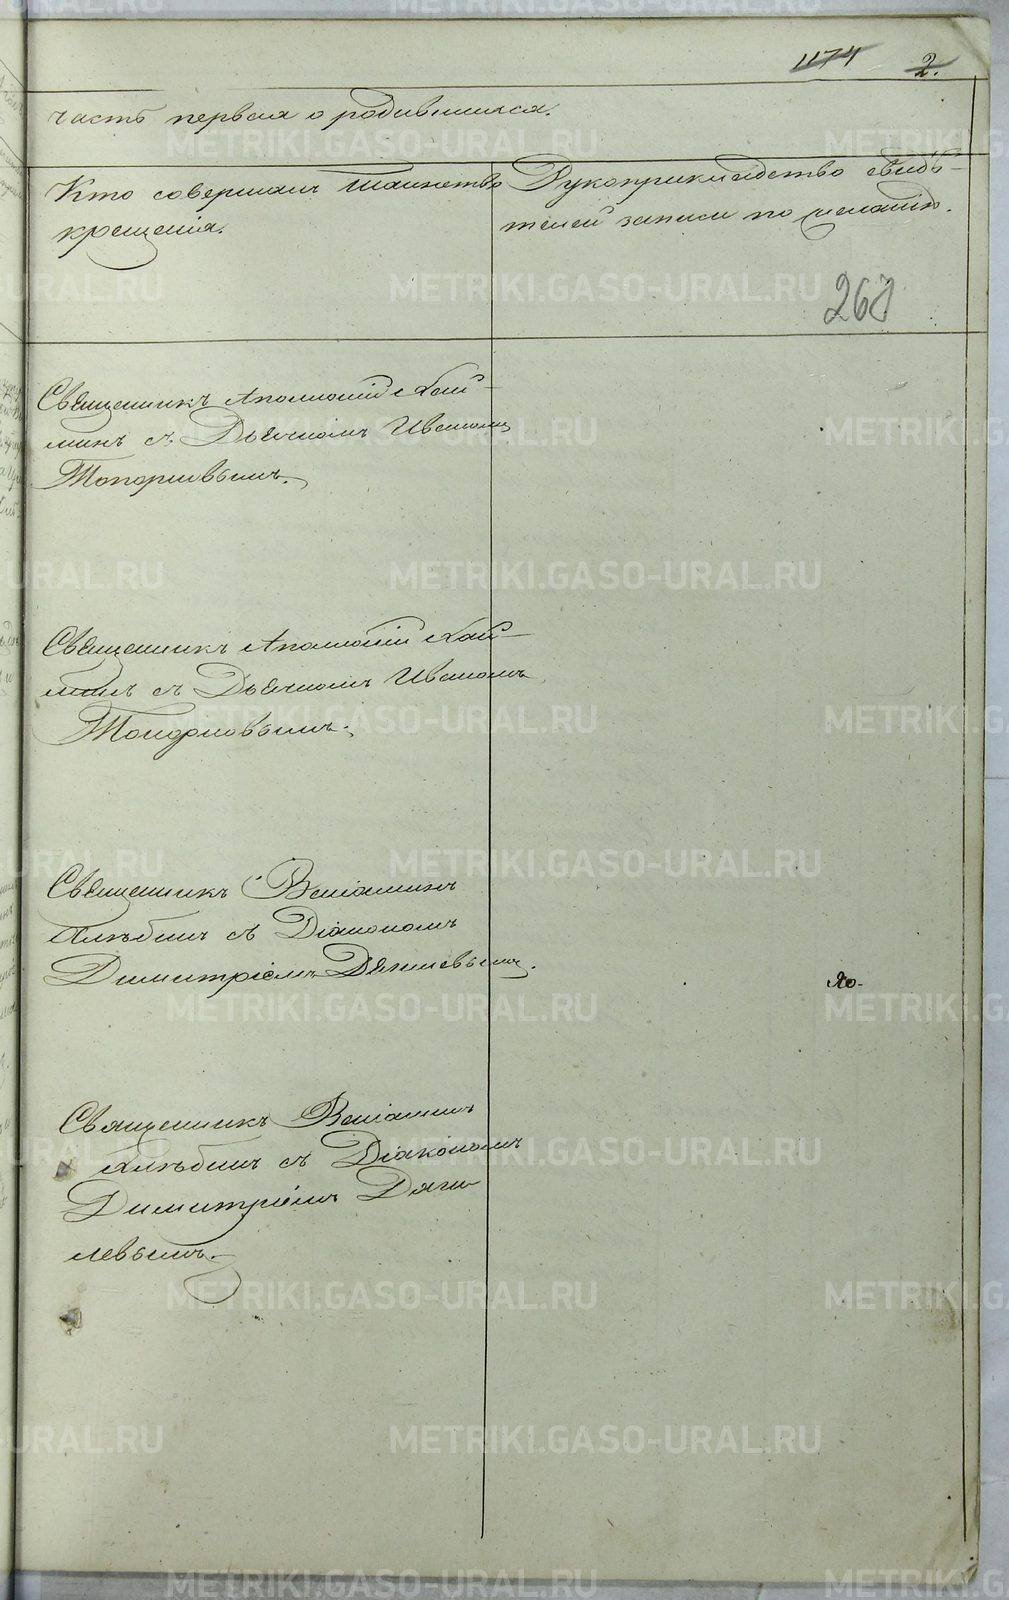 1174 2.
часть первая о родившихся.
Кто совершалъ таинство
крещенія.
Рукоприкладство свидѣ-
телей записи по желанію.
267
Священникъ Аполлоній Хай-
минъ съ Дьячкомъ Иваномъ
Топорковымъ.
Священникъ Аполлоній Хай-
минъ съ Дьячкомъ Иваномъ
Топорковымъ.
Священникъ Веніаминъ
Алѣбинъ съ Діакономъ
Димитріемъ Дягилевымъ.
Священникъ Веніаминъ
Алѣбинъ съ Діакономъ
Димитріемъ Дяги-
левымъ.
METRIKI.GASO-URAL.RU